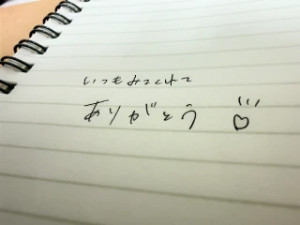 いつもみてくれて
ありがとう ♡